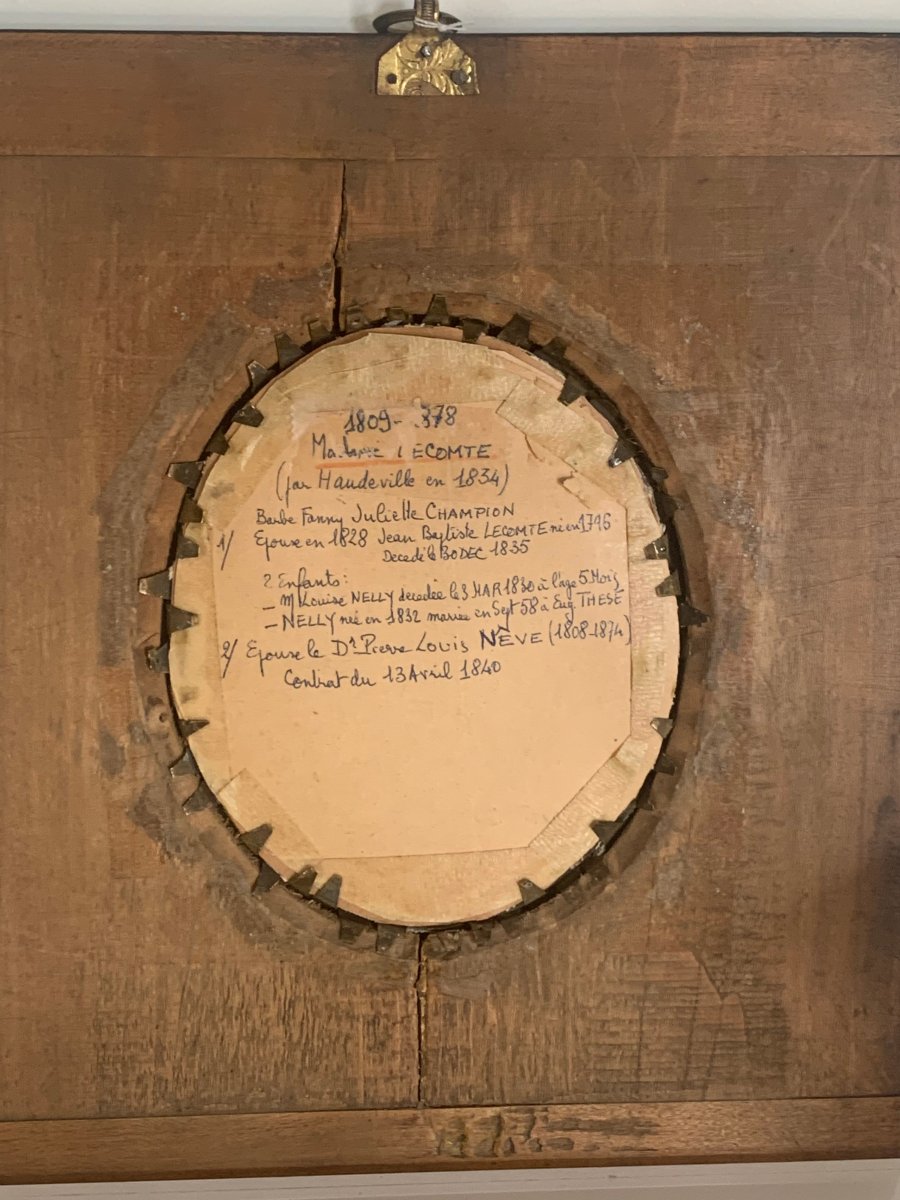 1809- .378
Madame LECOMTE
(par Haudeville en 1834)
Barbe Fanny Juliette CHAMPION
1/ Epouse en 1828 Jean Baptiste LECOMTE né en 1796
Decedé le 30 DEC 1835
2 Enfants:
- M Louise NELLY decedée le 3 MAR 1830 à l'age 5 Mois
- NELLY née en 1832 mariée en Sept 58 à Eug THESE
2/ Epouse le Dr Pierre Louis NÈVE (1808-1874)
Contrat du 13 Avril 1840